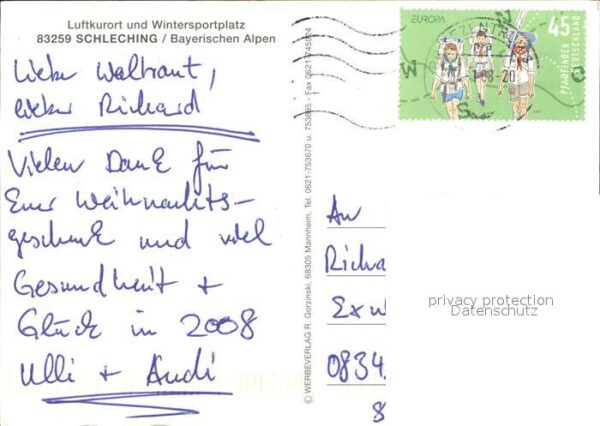 Luftkurort und Wintersportplatz
83259 SCHLECHING / Bayerischen Alpen
Liebe Waltraut,
lieber Richard
Vielen Dank für
Eure Weihnachts-
geschenk und viel
Gesundheit +
Glück in 2008
Ulli + Andi
© WERBEVERLAG R. Gorzinski, 68305 Mannheim, Tel. 0621-753670 u. 753695 - Fax 0621-745984
EUROPA
45
PFADFINDER
DEUTSCHLAND
W
S
O
08-20
An
Richa
Exw
0834.
8
privacy protection
Datenschutz